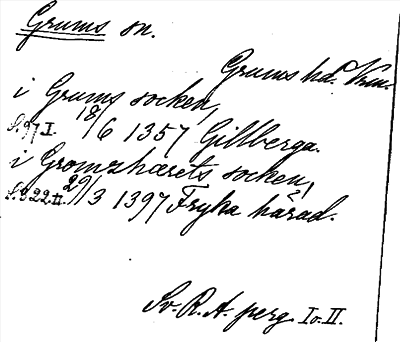 Grums sn.
Grums hd. Vrm.
i Grums socken,
S. 97 I. 18/6 1357 Gillberga.
i Gromzhærets socken,
S. 322 II. 29/3 1397 Fryka härad.
Sv. R. A. perg. I o. II.